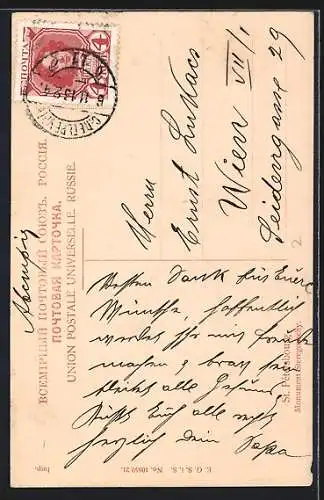 ПОЧТА
4 4
С.ПЕТЕРБУРГ
ВСЕМІРНЫЙ ПОЧТОВЫЙ СОЮЗЪ. РОССІЯ.
ПОЧТОВАЯ КАРТОЧКА.
UNION POSTALE UNIVERSELLE. RUSSIE.
Herrn
Ernst Lukacs
Wien VII/1
Seidengasse 29
Besten Dank für Eure
Wünsche, hoffentlich
werdet Ihr mir Freude
machen & brav sein
bleibt alle gesund,
Küsst Euch alle recht
herzlich Dein Papa
St. Pétersbourg.
2.
Imp. E. G. S. i. S. No.